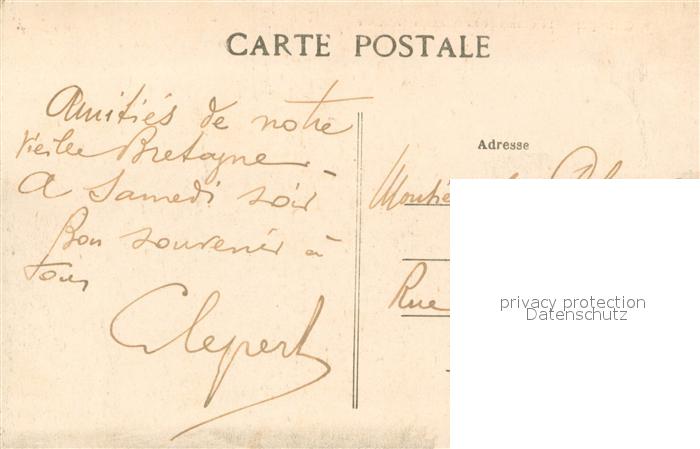 CARTE POSTALE
Amitiés de notre
Vieille Bretagne -
A Samedi soir
Bon souvenir à
tous
Adresse
Rue
privacy protection
Datenschutz